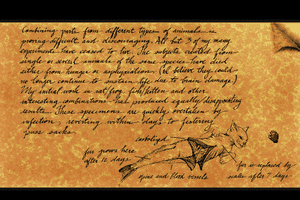 Combining parts from different types of animals is
proving difficult and discouraging. All but 3 of my many
experiments have ceased to live. The subjects created from
single or several animals of the same species have died
either from hunger or asphyxiation (I believe they could
no longer continue to sustain life due to brain damage)
My initial work in rat frog fish/kitten and other
interesting combinations had produced equally disappointing
results. These specimens are quickly overtaken by
infection, reverting within days to festering
puss sacks.
fur grows here
after 12 days
spine and blood vessels
fur is replaced by
water after 7 days